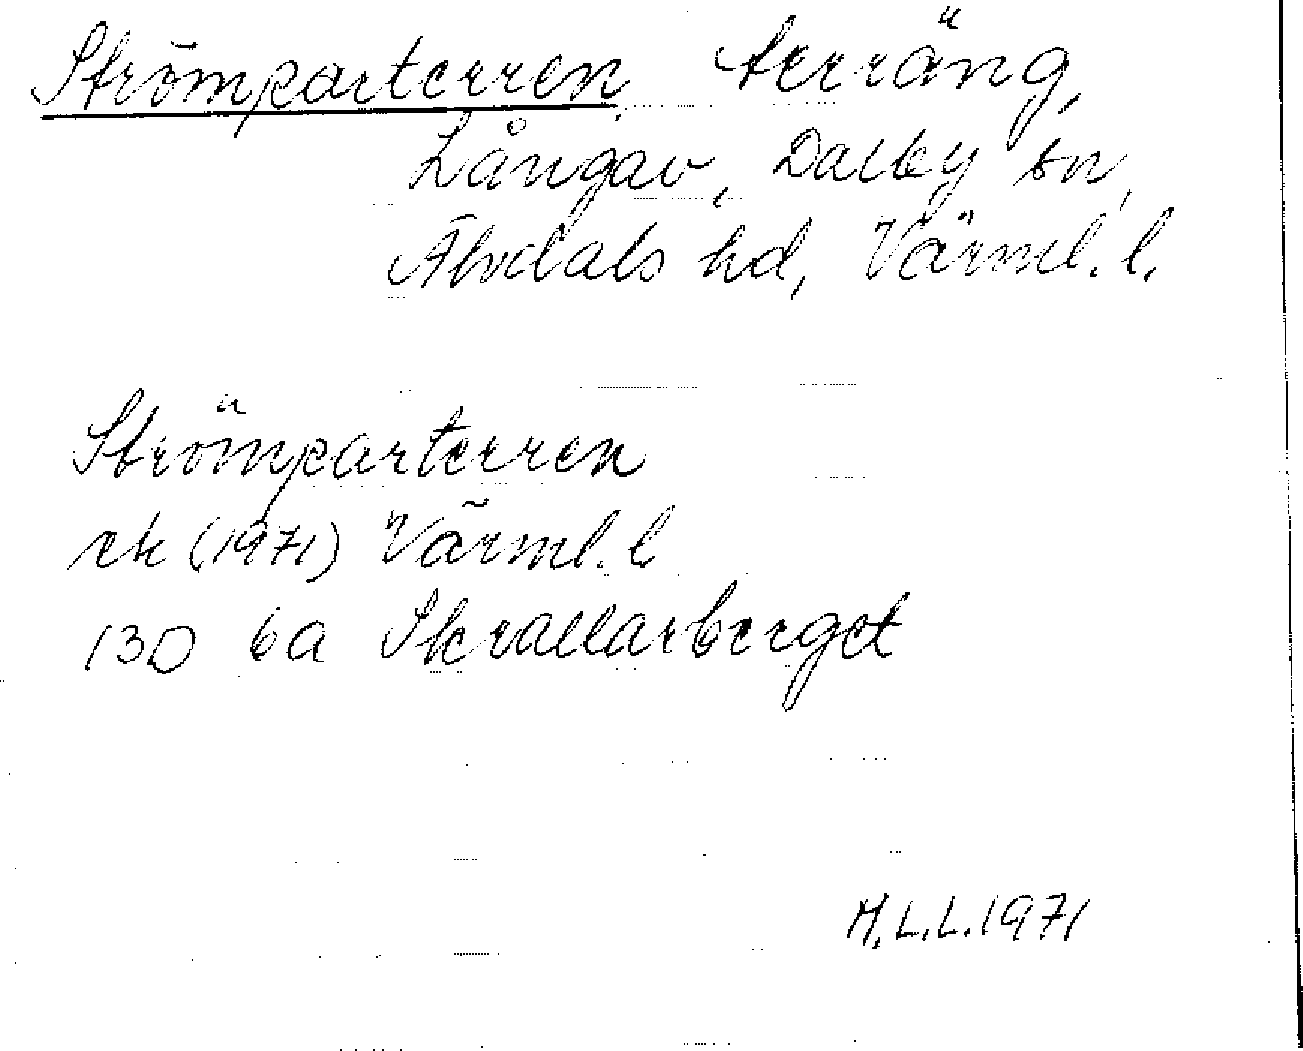 Strömparterren terräng,
Långav, Dalby sn,
Älvdals hd, Värml. l.
Strömparterren
rk (1971) Värml. l
13D 6a Skrallarberget
M.L.L.1971